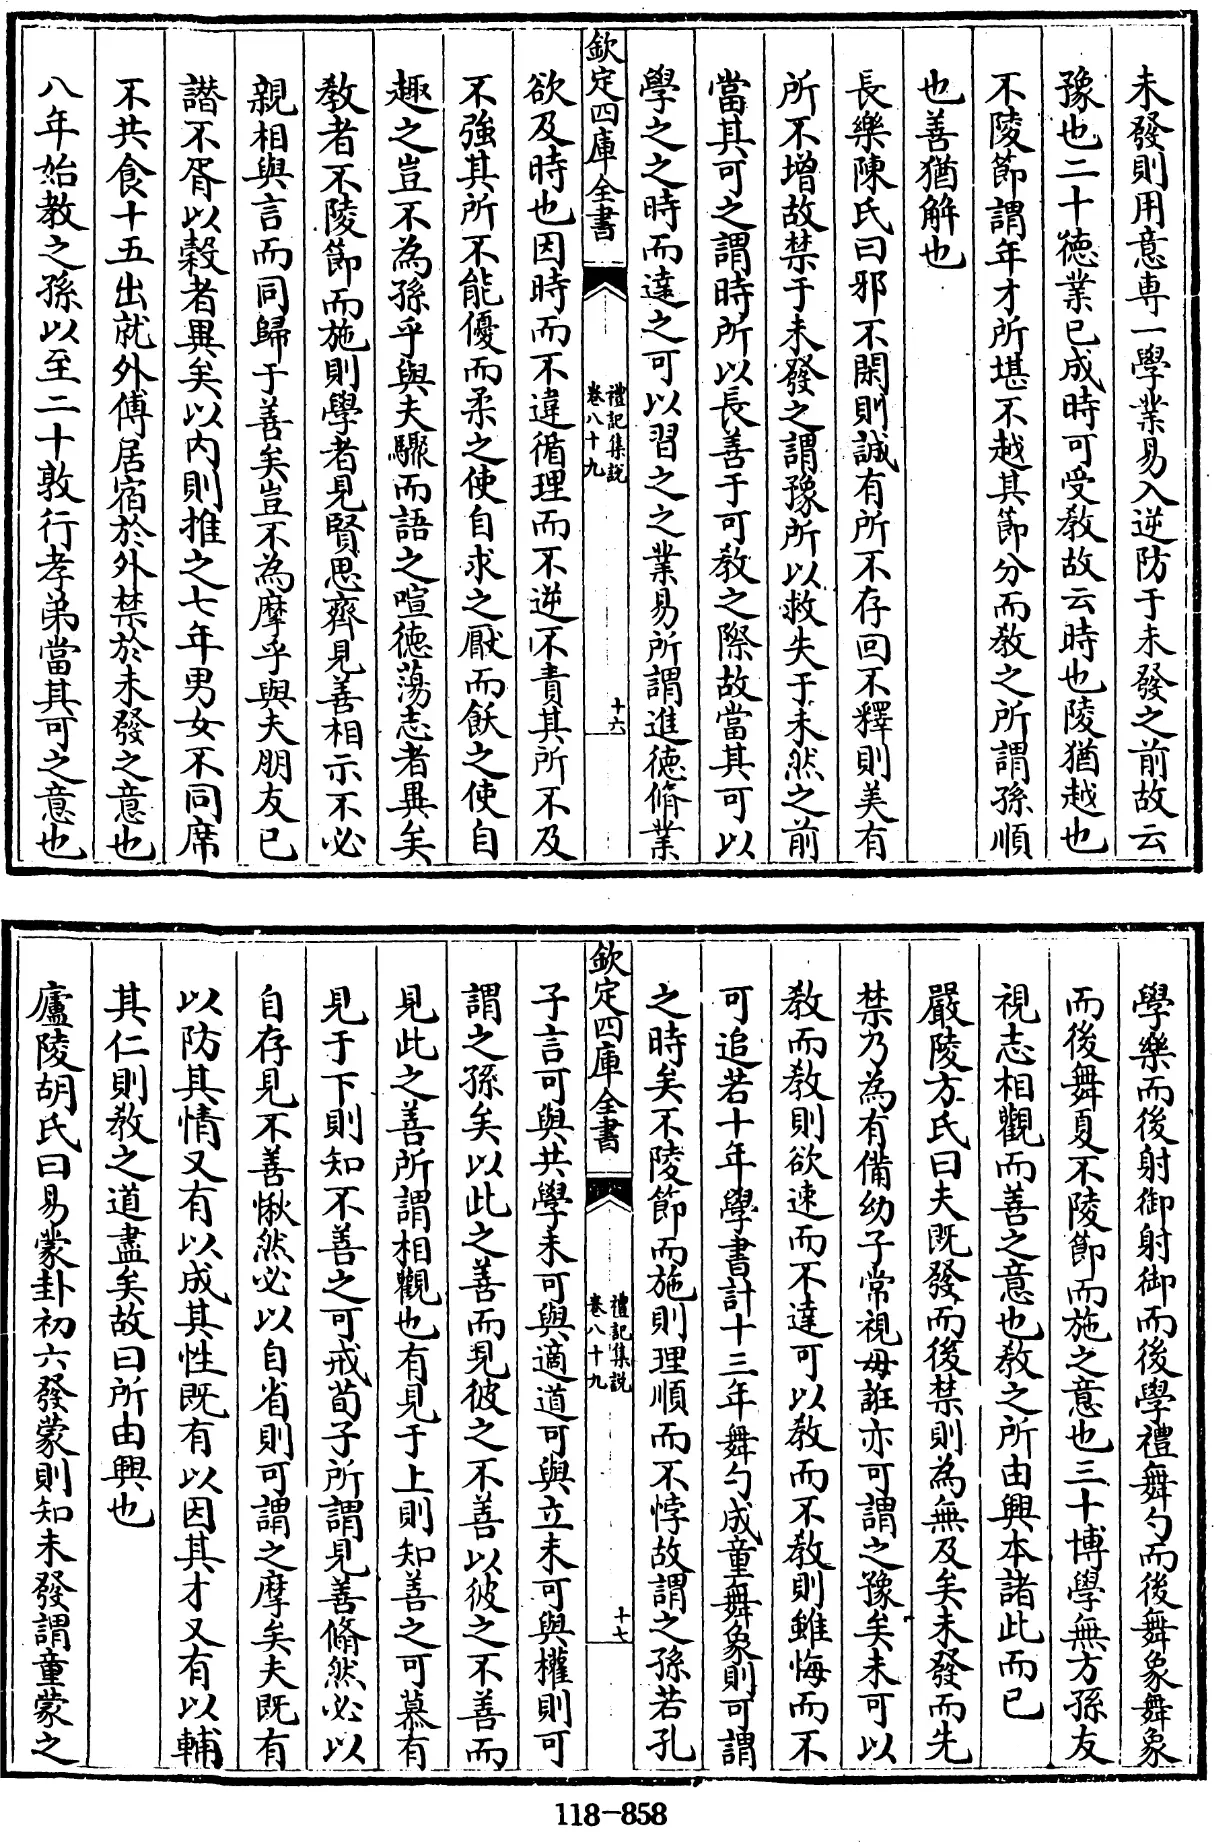 未發則用意専一學業易入逆防于未發之前故云
豫也二十徳業已成時可受教故云時也陵猶越也
不陵節謂年才所堪不越其節分而教之所謂孫順
也善猶解也
長樂陳氏曰邪不閑則誠有所不存回不釋則美有
所不增故禁于未發之謂豫所以救失于未然之前
當其可之謂時所以長善于可教之際故當其可以
學之之時而達之可以習之之業易所謂進徳脩業
欽定四庫全書
禮記集説
卷八十九
十六
欲及時也因時而不違循理而不逆不責其所不及
不強其所不能優而柔之使自求之厭而飫之使自
趣之豈不為孫乎與夫驟而語之喧徳蕩志者異矣
教者不陵節而施則學者見賢思齊見善相示不必
親相與言而同歸于善矣豈不為摩乎與夫朋友已
譖不胥以穀者異矣以内則推之七年男女不同席
不共食十五出就外傅居宿於外禁於未發之意也
八年始教之孫以至二十敦行孝弟當其可之意也
學樂而後射御射御而後學禮舞勺而後舞象舞象
而後舞夏不陵節而施之意也三十博學無方孫友
視志相觀而善之意也教之所由興本諸此而已
嚴陵方氏曰夫既發而後禁則為無及矣未發而先
禁乃為有備幼子常視毋誑亦可謂之豫矣未可以
教而教則欲速而不達可以教而不教則雖悔而不
可追若十年學書計十三年舞勺成童舞象則可謂
之時矣不陵節而施則理順而不悖故謂之孫若孔
欽定四庫全書
禮記集説
卷八十九
十七
子言可與共學未可與適道可與立未可與權則可
謂之孫矣以此之善而見彼之不善以彼之不善而
見此之善所謂相觀也有見于上則知善之可慕有
見于下則知不善之可戒荀子所謂見善脩然必以
自存見不善愀然必以自省則可謂之摩矣夫既有
以防其情又有以成其性既有以因其才又有以輔
其仁則教之道盡矣故曰所由興也
廬陵胡氏曰易蒙卦初六發蒙則知未發謂童蒙之
118-858